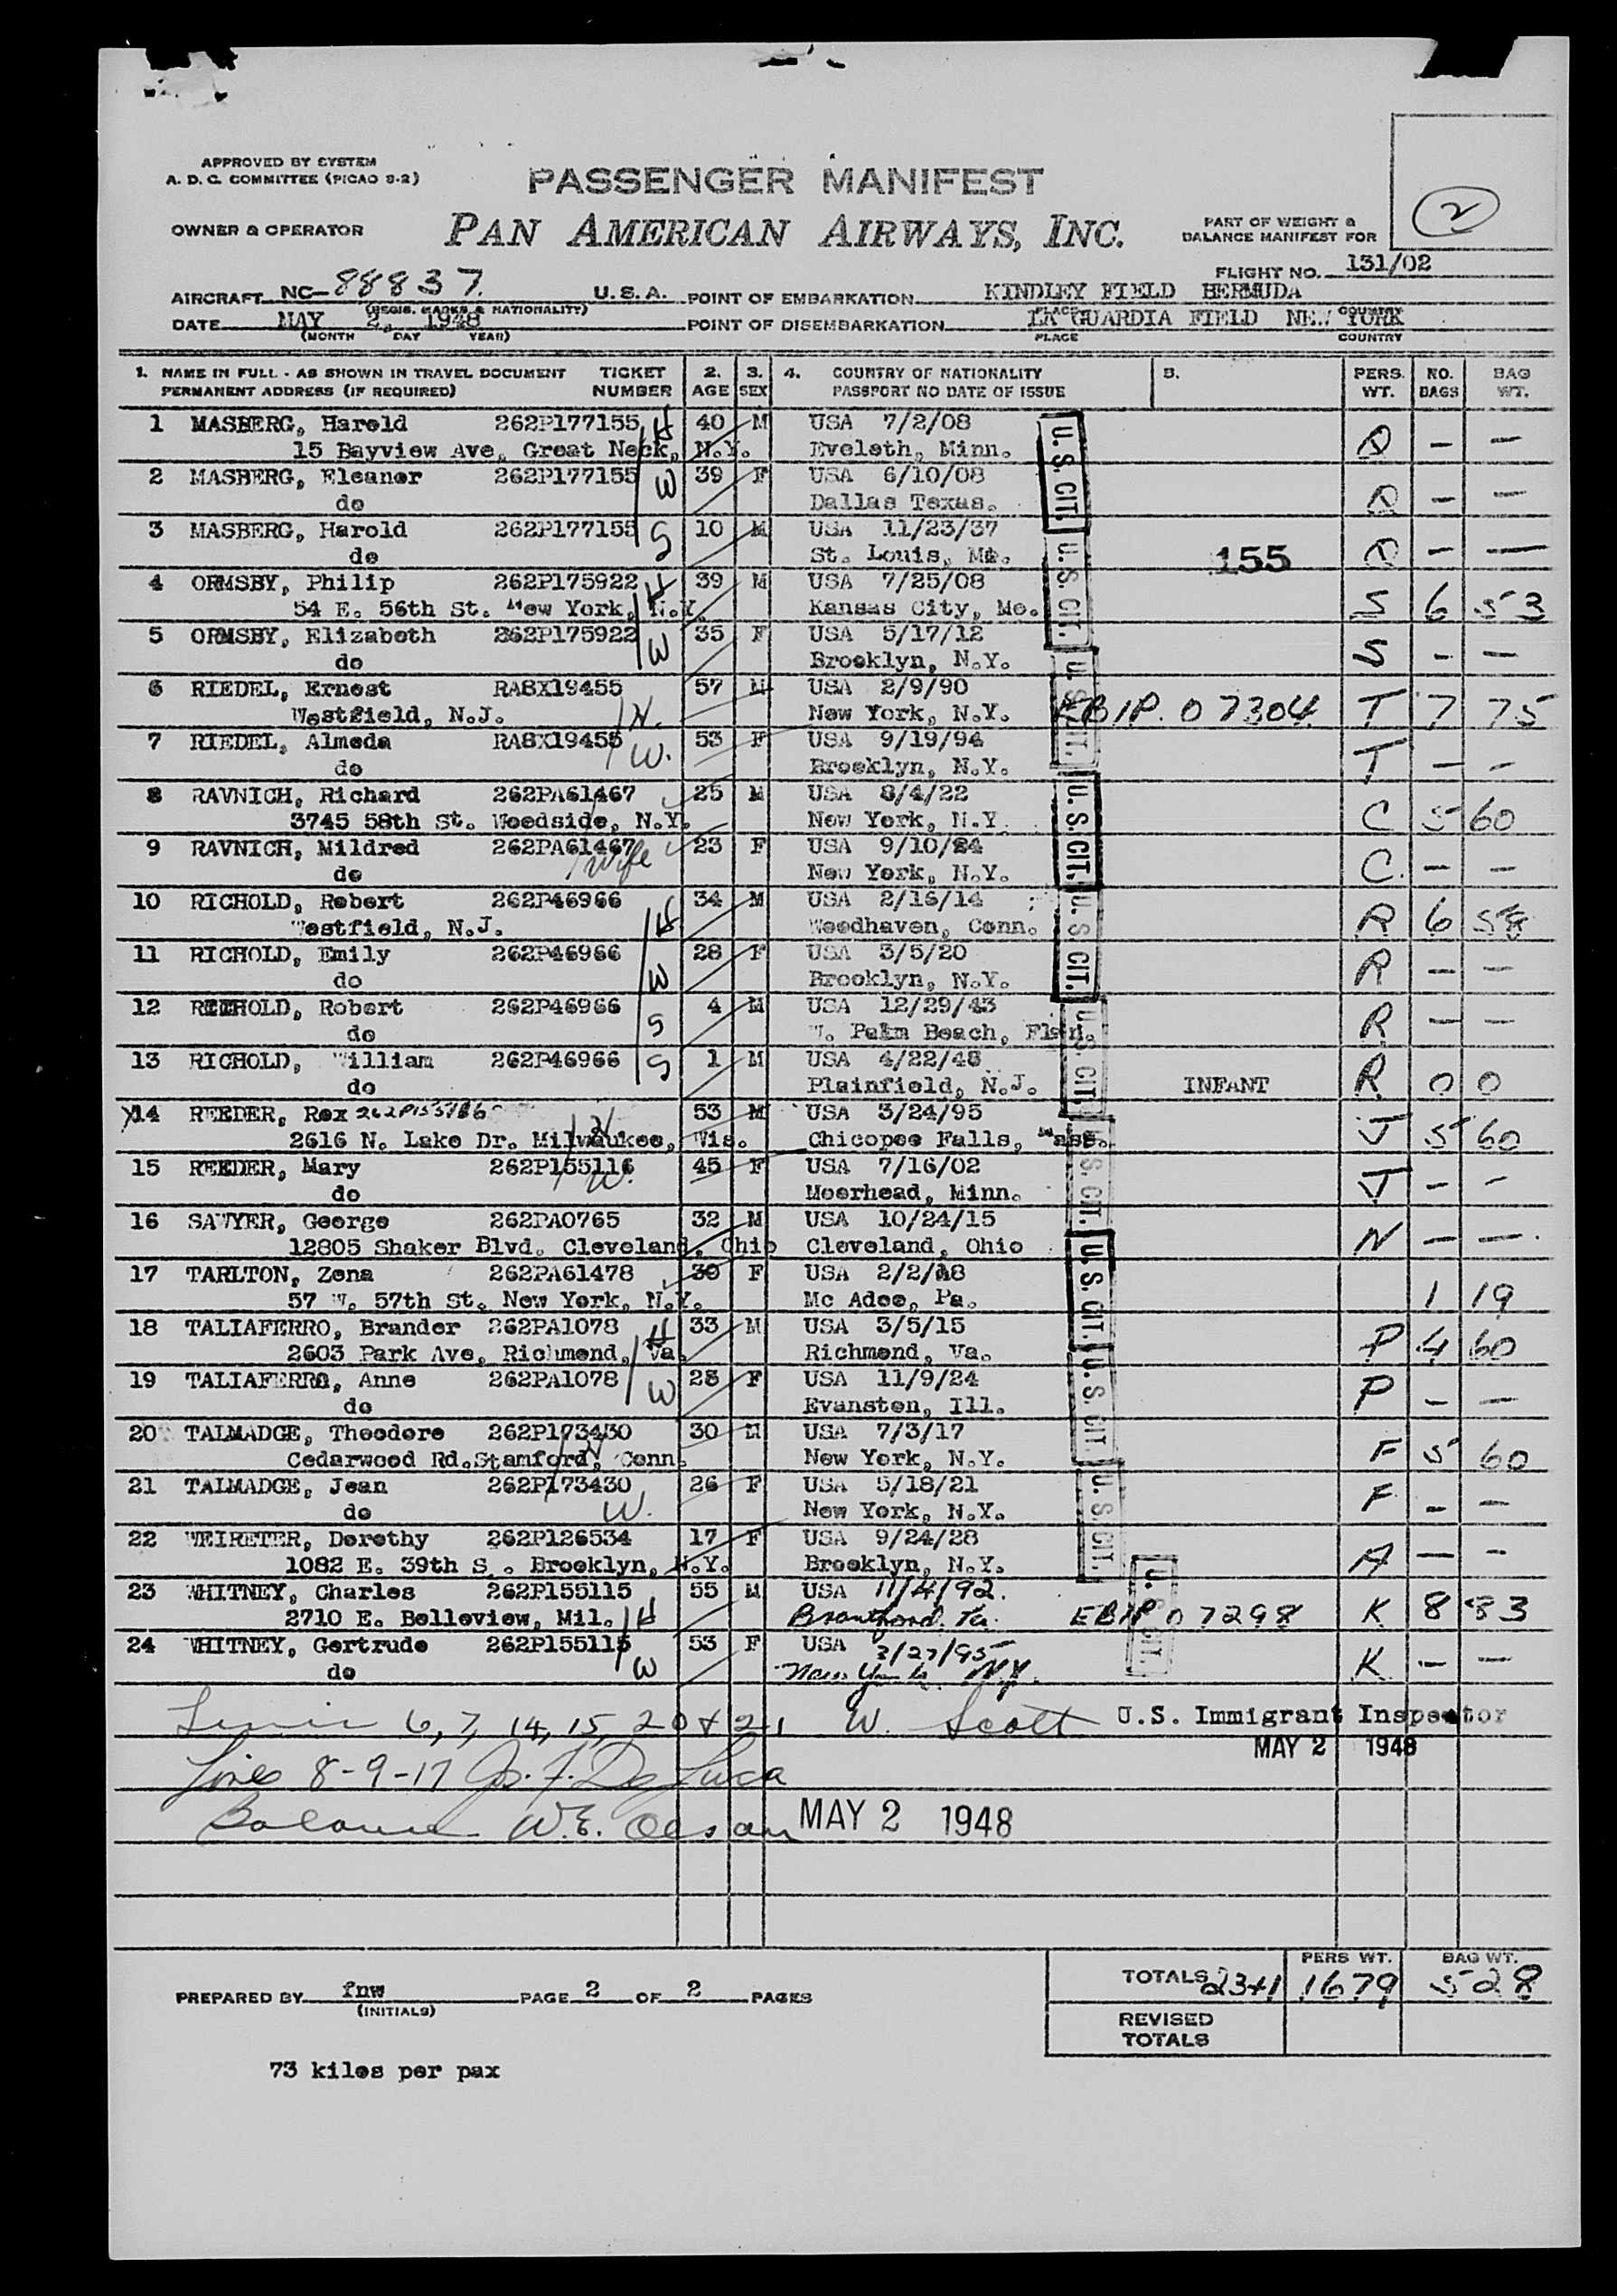 APPROVED BY SYSTEM
A. D. C. COMMITTEE (PICAO S-2)
PASSENGER MANIFEST
2
OWNER & OPERATOR
PAN AMERICAN AIRWAYS, INC.
PART OF WEIGHT &
BALANCE MANIFEST FOR
FLIGHT NO. 131/02
AIRCRAFT NC-88837 U. S. A. POINT OF EMBARKATION KINDLEY FIELD BERMUDA
(REGIS. MARKS & NATIONALITY) PLACE COUNTRY
DATE MAY 2, 1948 POINT OF DISEMBARKATION LA GUARDIA FIELD NEW YORK
(MONTH DAY YEAR) PLACE COUNTRY
1. NAME IN FULL - AS SHOWN IN TRAVEL DOCUMENT TICKET 2. 3. 4. COUNTRY OF NATIONALITY 5. PERS. NO. BAG
PERMANENT ADDRESS (IF REQUIRED) NUMBER AGE SEX PASSPORT NO DATE OF ISSUE WT. BAGS WT.
1 MASBERG, Harold 262P177155 H 40 M USA 7/2/08
15 Bayview Ave, Great Neck, N.Y. Eveleth, Minn. Q - -
2 MASBERG, Eleanor 262P177155 W 39 F USA 6/10/08
do Dallas Texas. Q - -
3 MASBERG, Harold 262P177155 S 10 M USA 11/23/37
do St. Louis, Mo. 155 Q - -
4 ORMSBY, Philip 262P175922 H 39 M USA 7/25/08
54 E. 56th St. New York, N.Y. Kansas City, Mo. S 6 53
5 ORMSBY, Elizabeth 262P175922 W 35 F USA 5/17/12
do Brooklyn, N.Y. S - -
6 RIEDEL, Ernest RA8X19455 57 M USA 2/9/90
Westfield, N.J. H. New York, N.Y. EBIP. 07304 T 7 75
7 RIEDEL, Almeda RA8X19455 W. 53 F USA 9/19/94
do Brooklyn, N.Y. T - -
8 RAVNICH, Richard 262PA61467 25 M USA 8/4/22
3745 58th St. Woodside, N.Y. New York, N.Y. C 5 60
9 RAVNICH, Mildred 262PA61467 wife 23 F USA 9/10/24
do New York, N.Y. C. - -
10 RICHOLD, Robert 262P46966 34 M USA 2/16/14
Westfield, N.J. H Woodhaven, Conn. R 6 58
11 RICHOLD, Emily 262P46966 28 F USA 3/5/20
do W Brooklyn, N.Y. R - -
12 RICHOLD, Robert 262P46966 4 M USA 12/29/43
do S W. Palm Beach, Fla. R - -
13 RICHOLD, William 262P46966 S 1 M USA 4/22/48
do Plainfield, N.J. INFANT R 0 0
14 REEDER, Rex 53 M USA 3/24/95
2616 N. Lake Dr. Milwaukee, Wis. H Chicopee Falls, Mass. J 5 60
15 REEDER, Mary 262P155116 45 F USA 7/16/02
do W. Moorhead, Minn. J - -
16 SAWYER, George 262PA0765 32 M USA 10/24/15
12805 Shaker Blvd. Cleveland, Ohio Cleveland, Ohio N - -
17 TARLTON, Zena 262PA61478 30 F USA 2/2/18
57 W. 57th St. New York, N.Y. Mc Adoo, Pa. 1 19
18 TALIAFERRO, Brander 262PA1078 H 33 M USA 3/5/15
2603 Park Ave, Richmond, Va. Richmond, Va. P 4 60
19 TALIAFERRO, Anne 262PA1078 W 23 F USA 11/9/24
do Evanston, Ill. P - -
20 TALMADGE, Theodore 262P173430 30 M USA 7/3/17
Cedarwood Rd. Stamford, Conn. H New York, N.Y. F 5 60
21 TALMADGE, Jean 262P173430 26 F USA 5/18/21
do W. New York, N.Y. F - -
22 WEIRETER, Dorothy 262P126534 17 F USA 9/24/28
1082 E. 39th S . Brooklyn, N.Y. Brooklyn, N.Y. A - -
23 WHITNEY, Charles 262P155115 55 M USA 11/4/92.
2710 E. Belleview, Mil. H EBIP 07298 K 8 83
24 WHITNEY, Gertrude 262P155115 53 F USA 3/27/95
do W New York N.Y. K - -
U. S. CIT.
U. S. CIT.
U. S. CIT.
U. S. CIT.
U. S. CIT.
U. S. CIT.
U. S. CIT.
U. S. CIT.
U. S. CIT.
U. S. CIT.
U. S. CIT.
6, 7, 14, 15, 20 & 21 W. Scott U.S. Immigrant Inspector
MAY 2 1948
Lines 8-9-17 Jos. F. De Luca
Balance W.E. Olson MAY 2 1948
PERS WT. BAG WT.
TOTALS 23+1 1679 528
PREPARED BY fnw PAGE 2 OF 2 PAGES
(INITIALS)
REVISED
TOTALS
73 kilos per pax